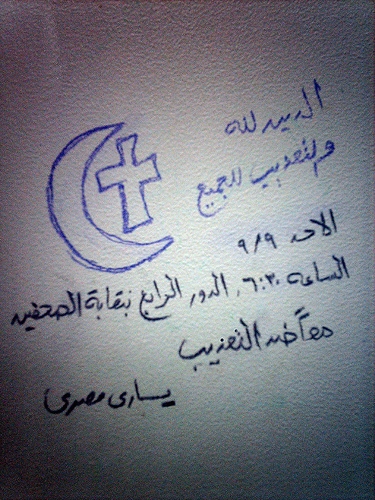 الدين لله
والتعذيب للجميع
الاحد ٩/٩
الساعة ٦:٣٠، الدور الرابع نقابة الصحفيين
معاً ضد التعذيب
يسارى مصرى